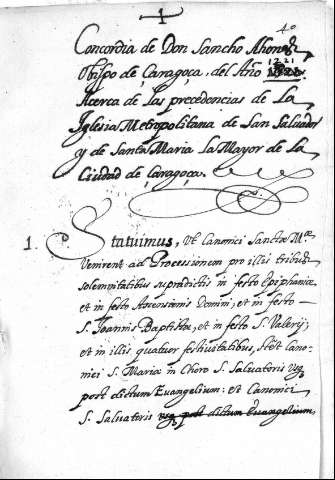 1
40
Concordia de Don Sancho Ahones
Obispo de Çaragoça, del Año 1221
Acerca de las precedencias de La
Iglesia Metropolitana de San Salvador
y de Santa Maria La Mayor de La
Ciudad de Çaragoça.
1. Statuimus, Vt Canonici Sanctæ Mᵉ
Venirent ad Processionem pro illis tribus
solemnitatibus supradictis in festo Epiphaniæ
et in festo Ascensionis Domini, et in festo
S. Joannis Baptistæ, et in festo S. Valerij;
et in illis quatuor festivitatibus, stēt Cano-
nici S. Mariæ in Choro S. Salvatoris vsq
post dictum Evangelium: et Canonici
S. Salvatoris vsq post dictum Evangelium,